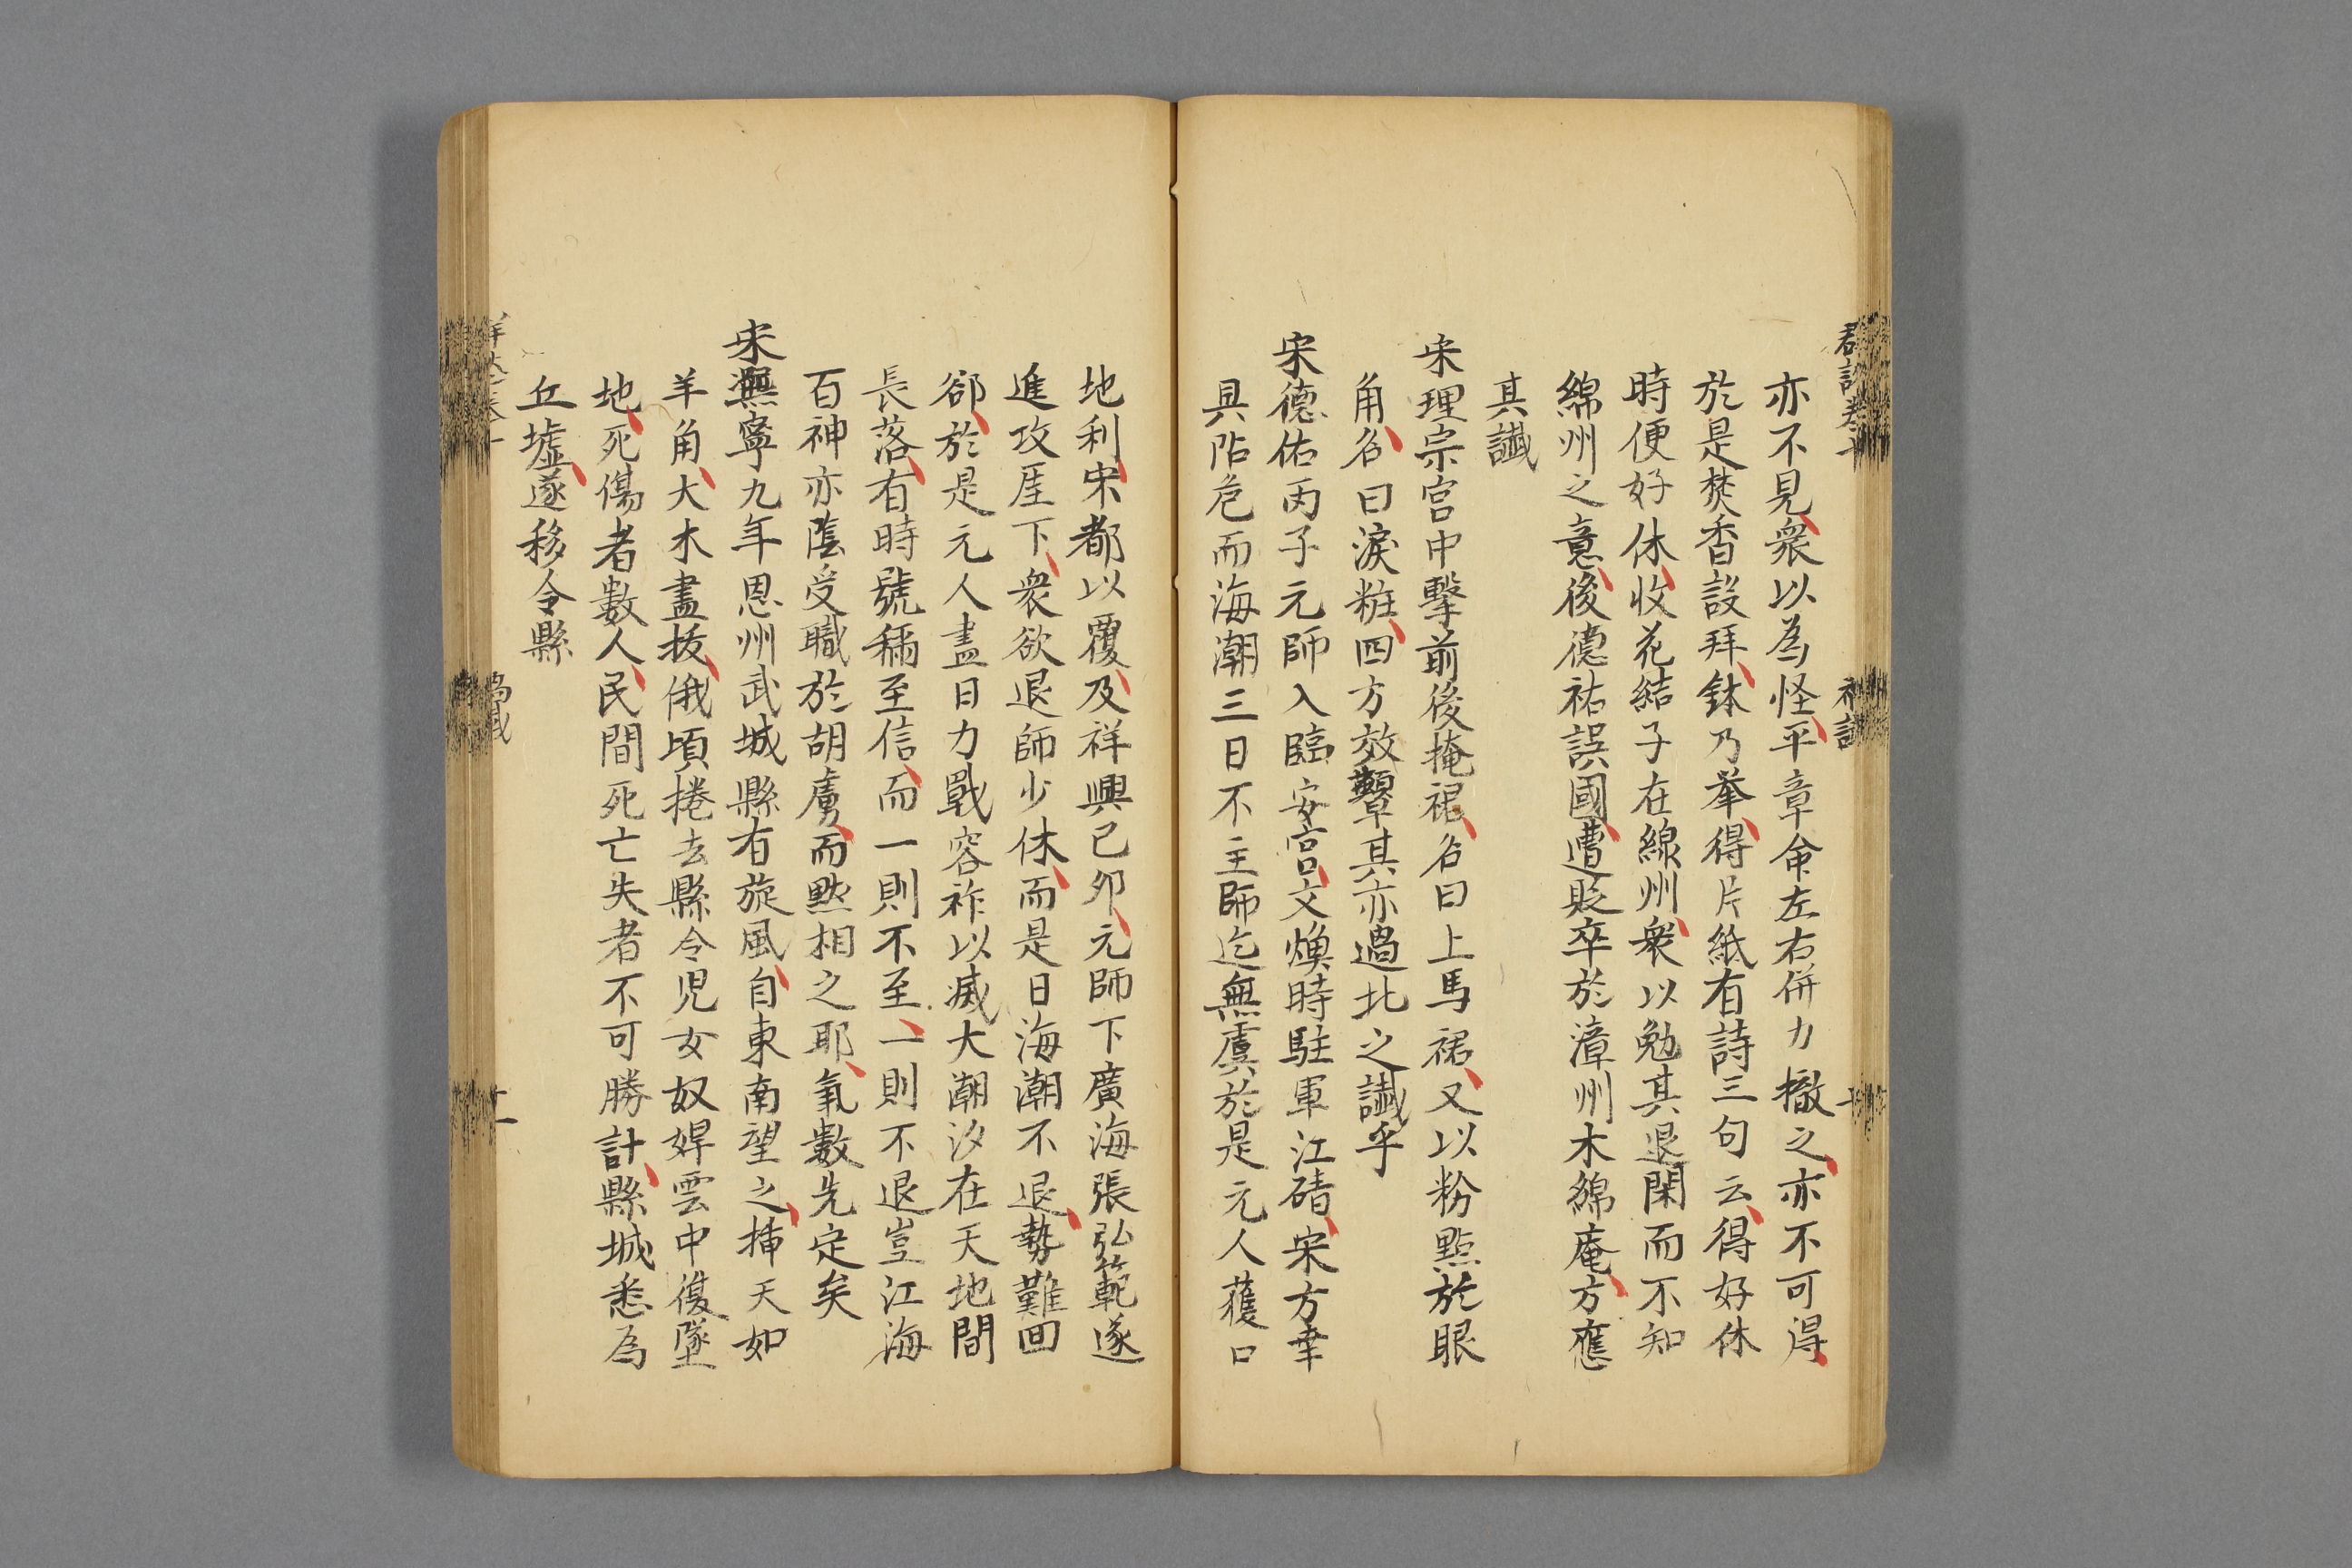 亦不見衆以為怪平章命左右併力撤之亦不可得
於是焚香設拜鉢乃举得片紙有詩三句云得好休
時便好休收花結子在線州衆以勉其退閑而不知
綿州之意後德祐誤國遭貶卒於漳州木綿庵方應
其讖
宋理宗宮中擊前後掩裙名曰上馬裙又以粉點於眼
角名曰淚粧四方效顰其亦過北之讖乎
宋德佑丙子元師入臨安宮文煥時駐軍江碏宋方幸
具阽危而海潮三日不至師迄無虞於是元人蒦口
地利宋都以覆及祥興已夘元師下廣海張弘範遂
進攻厓下衆欲退師少休而是日海潮不退勢難回
郤於是元人盡日力戰容祚以滅大潮汐在天地間
長落有時號稱至信而一則不至一則不退豈江海
百神亦陰受職於胡虜而默相之耶氣數先定矣
宋熈寧九年恩州武城縣有旋風自東南望之挿天如
羊角大木盡拔俄頃捲去縣令児女奴婢雲中復墜
地死傷者數人民間死亡失者不可勝計縣城悉為
丘墟遂移令縣